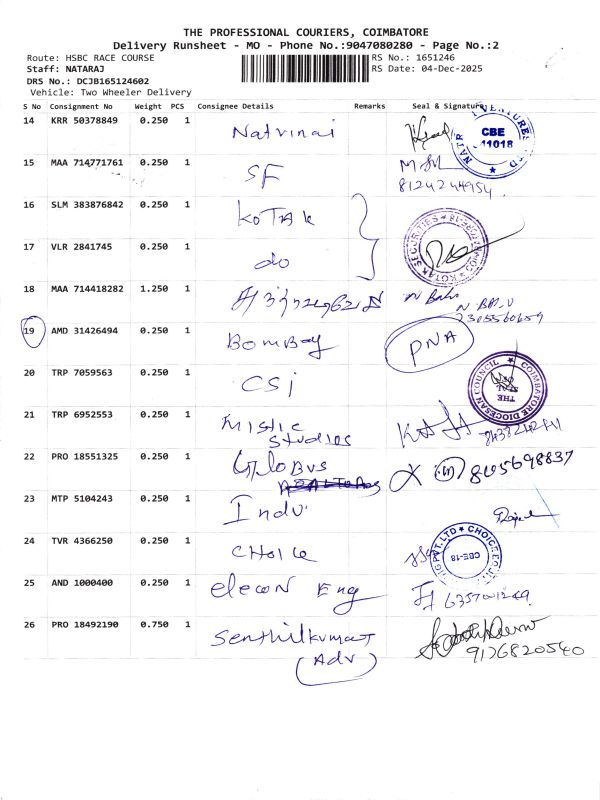 THE PROFESSIONAL COURIERS, COIMBATORE
Delivery Runsheet - MO - Phone No.:9047080280 - Page No.:2
Route: HSBC RACE COURSE
RS No.: 1651246
Staff: NATARAJ
RS Date: 04-Dec-2025
DRS No.: DCJB165124602
Vehicle: Two Wheeler Delivery
S No Consignment No Weight PCS Consignee Details Remarks Seal & Signature
14 KRR 50378849 0.250 1 Natvinai
CBE
15 MAA 714771761 0.250 1 SF
8124244954
16 SLM 383876842 0.250 1 KOTAK
KOTAK SECURITIES
17 VLR 2841745 0.250 1 do
18 MAA 714418282 1.250 1
19 AMD 31426494 0.250 1 Bombay PNA
20 TRP 7059563 0.250 1 CSI
COIMBATORE DIOCESAN COUNCIL
THE
21 TRP 6952553 0.250 1 Mistic Studies
22 PRO 18551325 0.250 1 Globus
8105698837
23 MTP 5104243 0.250 1 Indu
24 TVR 4366250 0.250 1 CHOICE
CBE-18
25 AND 1000400 0.250 1 elecon Eng
26 PRO 18492190 0.750 1 Senthilkumar
(Adv)
9126820540